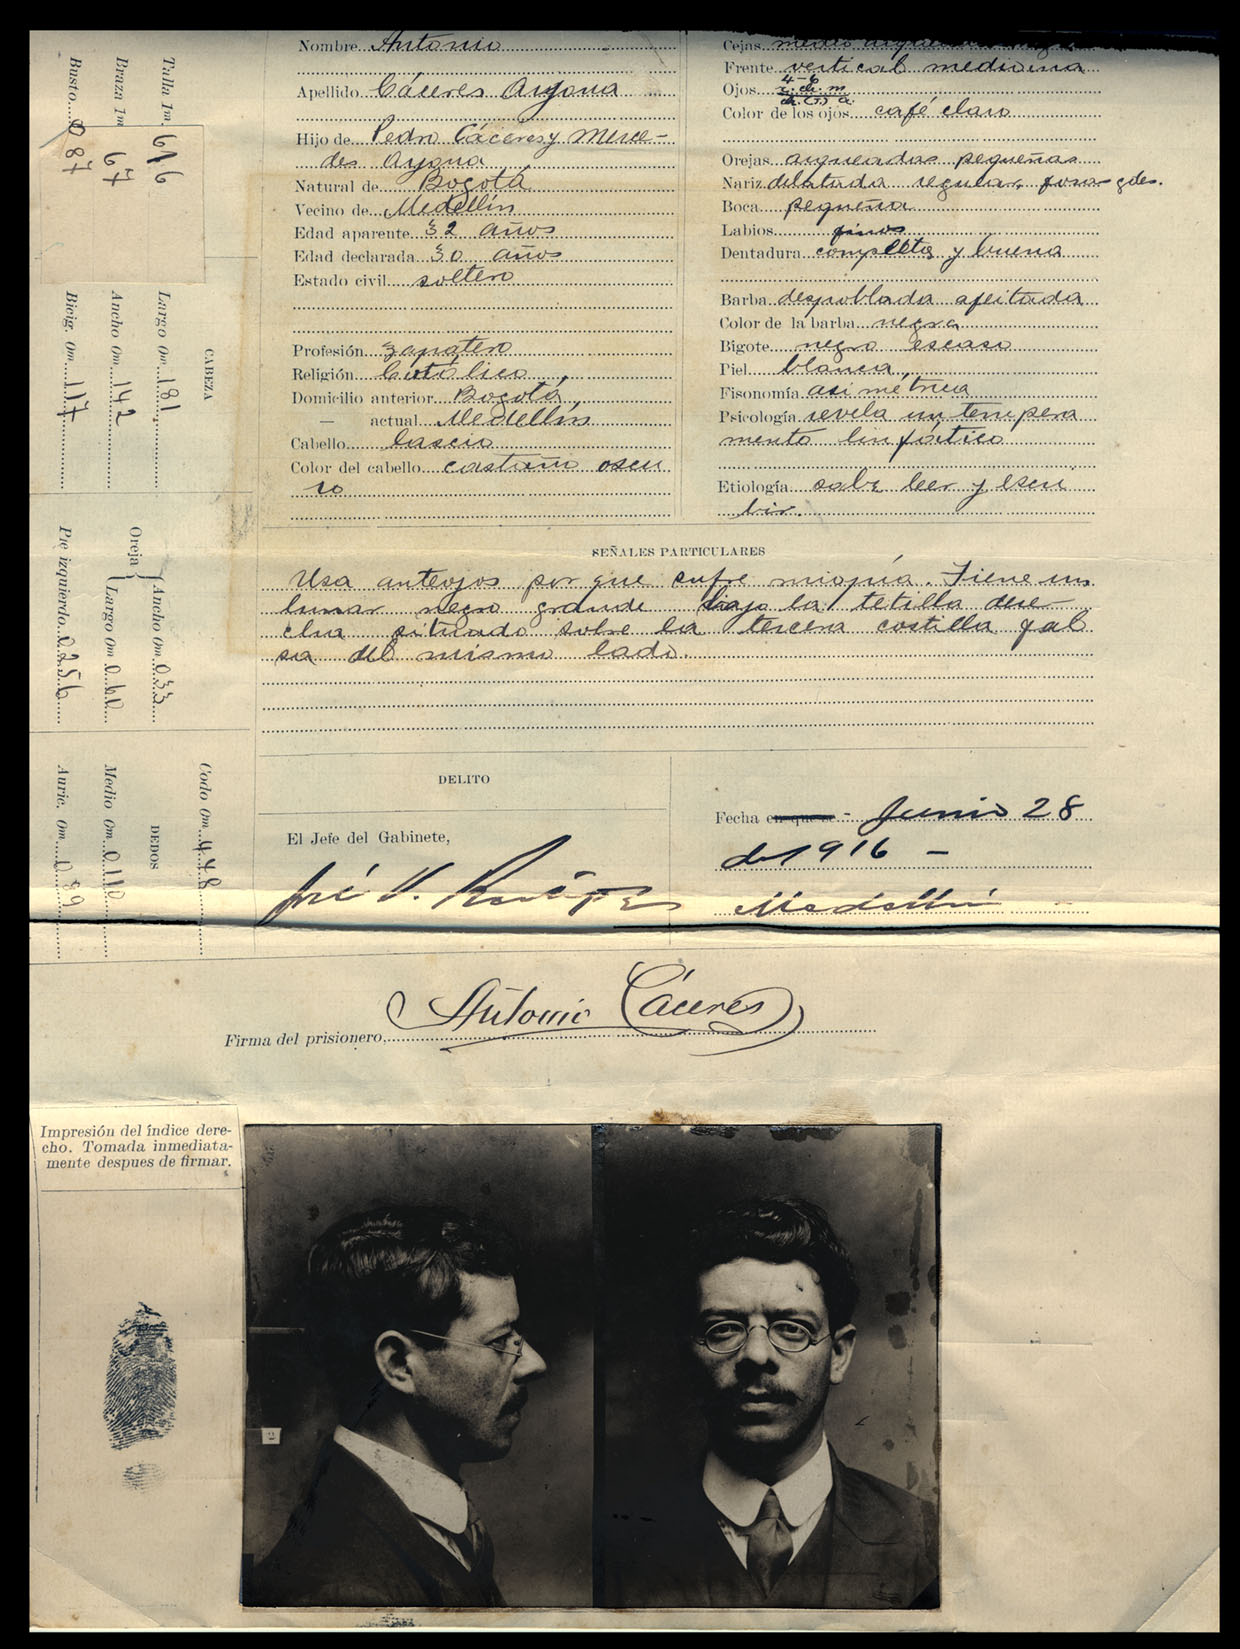 Nombre Antonio
Apellido Cáceres Arjona
Hijo de Pedro Cáceres y Merce-
des Arjona
Natural de Bogotá
Vecino de Medellín
Edad aparente 32 años
Edad declarada 30 años
Estado civil soltero
Profesión zapatero
Religión Católico
Domicilio anterior Bogotá
— actual Medellín
Cabello lascio
Color del cabello castaño oscu
ro
Cejas medio arqueadas
Frente vertical mediana
Ojos 4-6
Color de los ojos café claro
Orejas arqueadas pequeñas
Nariz dilatada regular, fosas gdes.
Boca pequeña
Labios finos
Dentadura completa y buena
Barba despoblada afeitada
Color de la barba negra
Bigote negro escaso
Piel blanca
Fisonomía asimétrica
Psicología revela un tempera
mento linfático
Etiología sabe leer y escri
bir.
Talla 1m 616
Braza 1m 67
Busto 0 87
CABEZA
Largo 0m 181
Ancho 0m 142
Bicig. 0m 117
Oreja
Ancho 0m 033
Largo 0m 060
Pie izquierdo 0256
Codo 0m 448
DEDOS
Medio 0m 0110
Auric. 0m 089
SEÑALES PARTICULARES
Usa anteojos por que sufre miopía. Tiene un
lunar negro grande bajo la tetilla dere
cha situado sobre la tercera costilla fal
sa del mismo lado.
DELITO
El Jefe del Gabinete,
José V.
Fecha en que se - Junio 28
de 1916 -
Medellín
Firma del prisionero, Antonio Cáceres
Impresión del índice dere-
cho. Tomada inmediata-
mente despues de firmar.